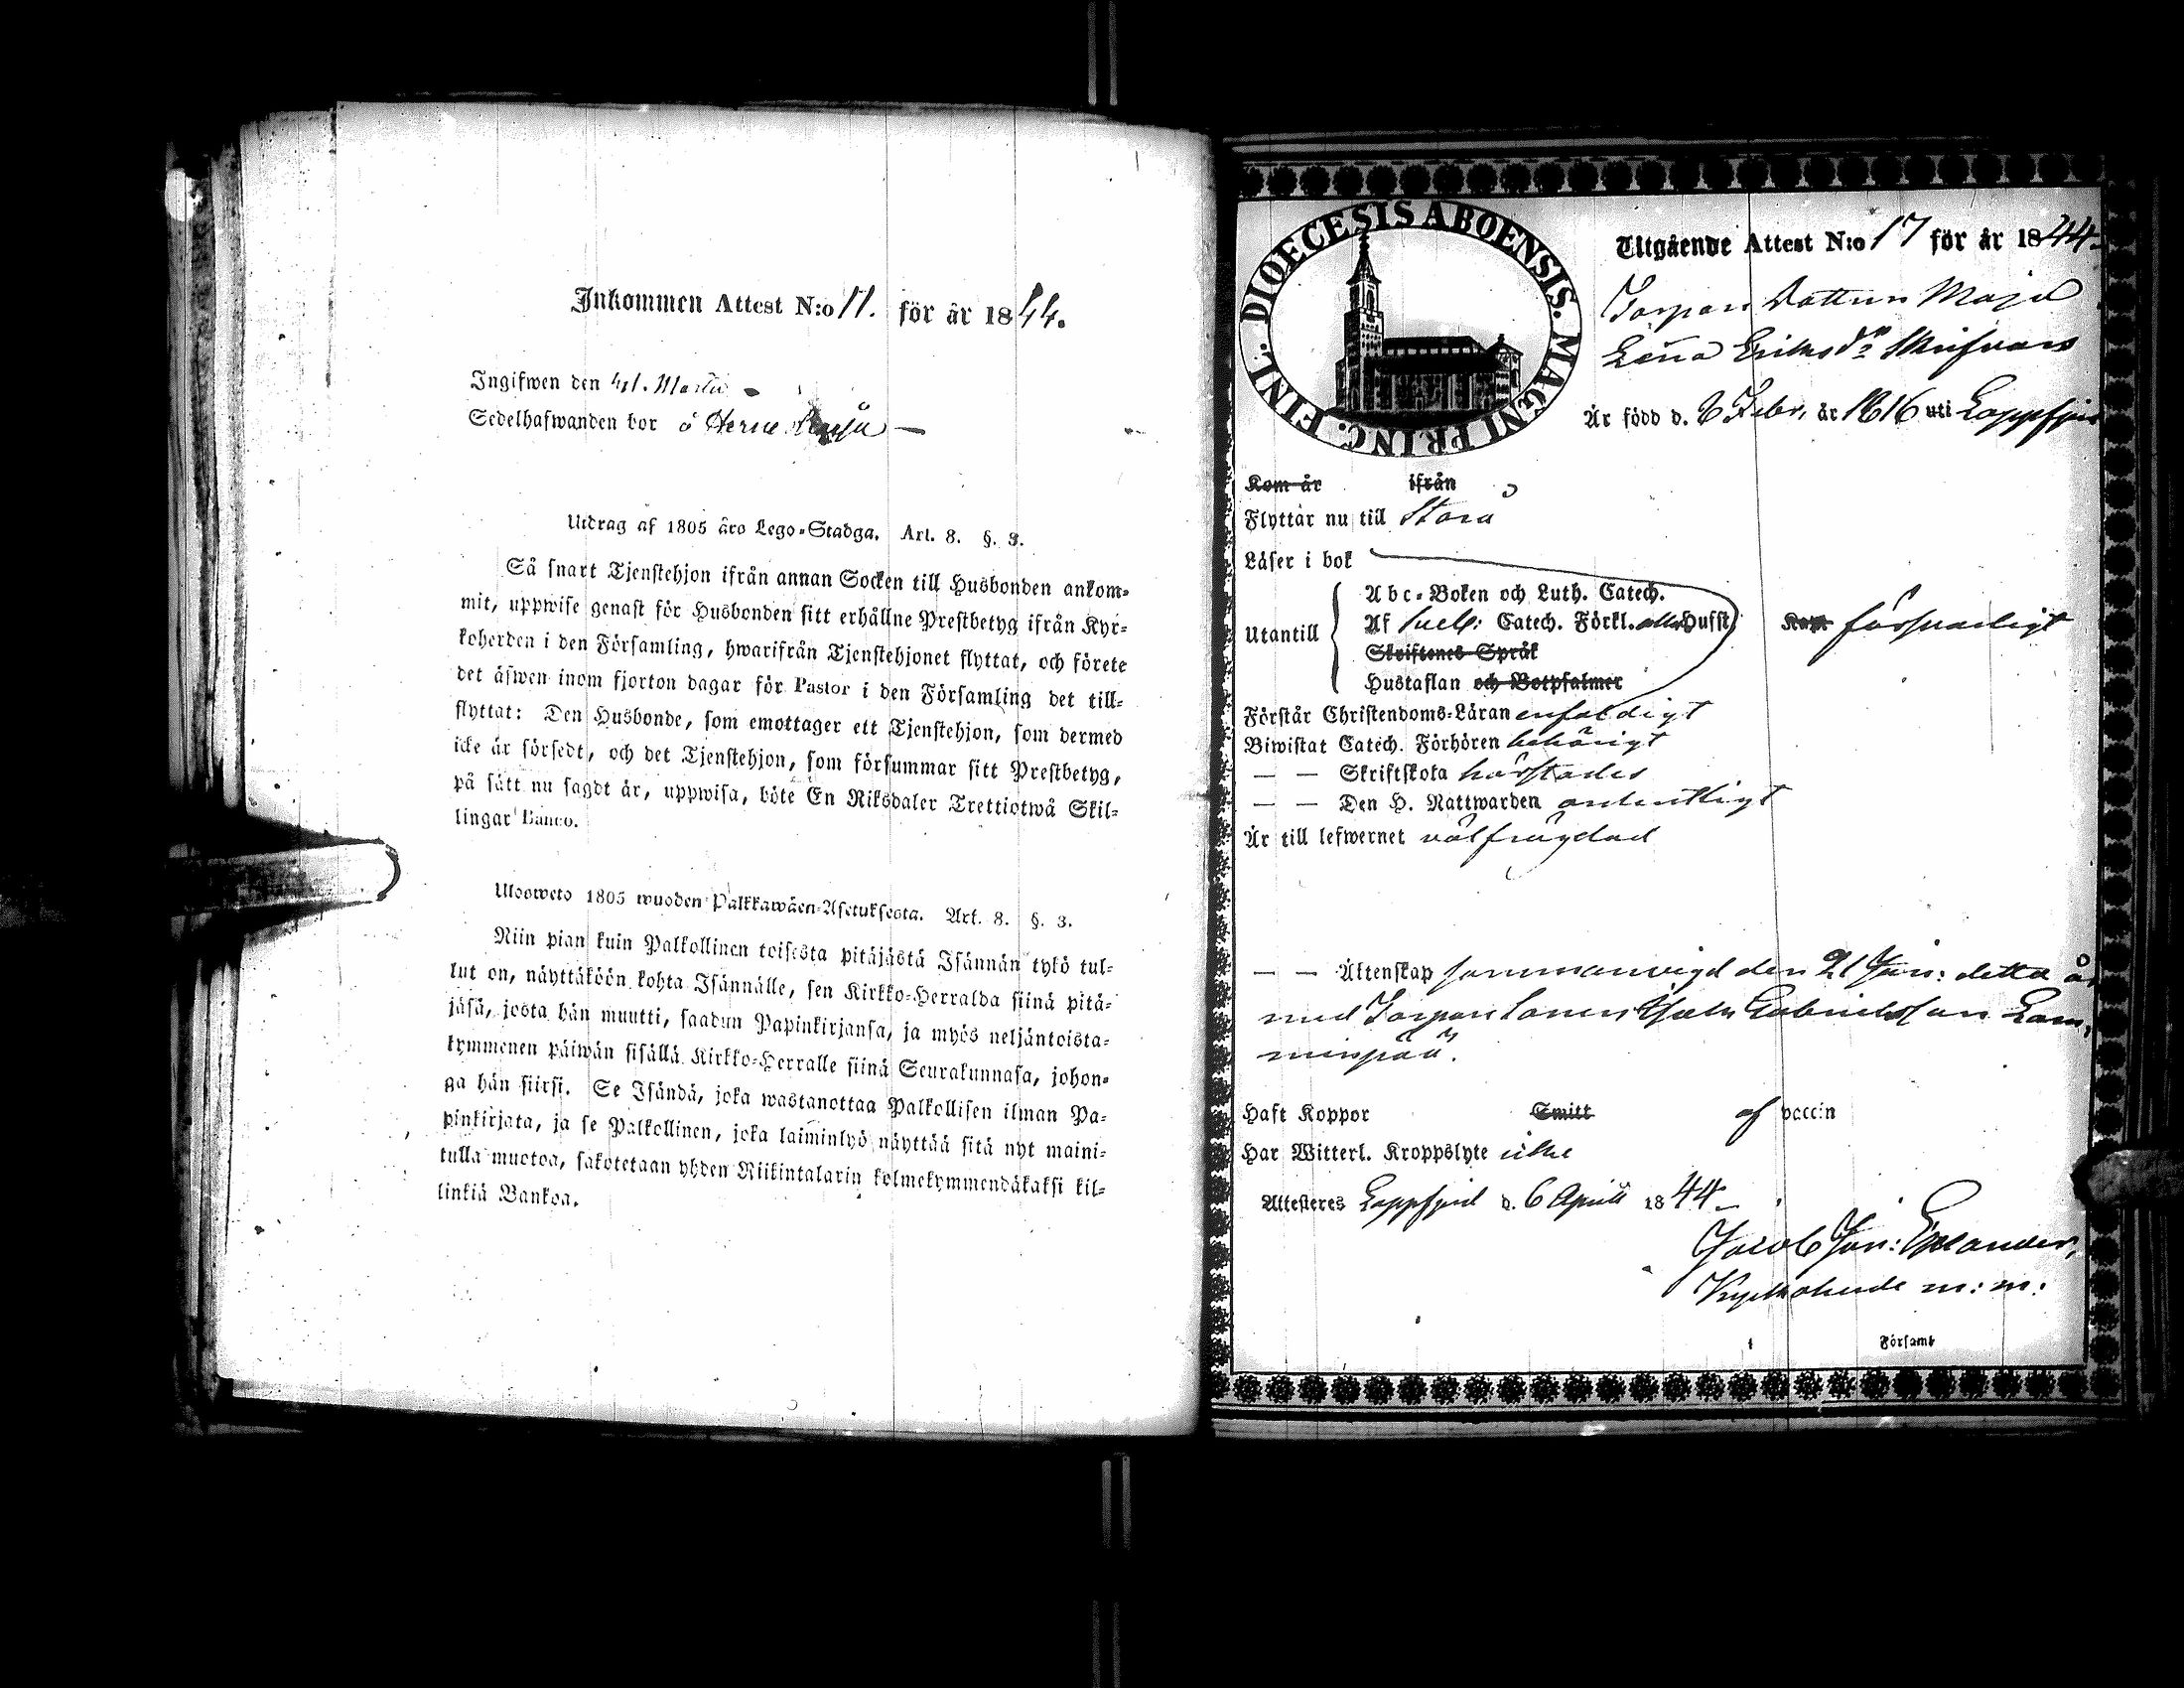 Inkommen Attest N:o 11. för år 1844.
Ingifwen den
Sedelhafwanden bor å
Utdrag af 1805 åro Lego-Stadga. Art. 8. §. 3.
Så snart Tjenstehjon ifrån annan Socken till Husbonden ankom-
mit, uppwise genast för Husbonden sitt erhållne Prestbetyg ifrån Kyr-
koherden i den Församling, hwarifrån Tjenstehjonet flyttat, och förete
det äfwen inom fjorton dagar för Pastor i den Församling det till-
flyttat: Den Husbonde, som emottager ett Tjenstehjon, som dermed
icke är försedt, och det Tjenstehjon, som försummar sitt Prestbetyg,
på sätt nu sagdt är, uppwisa, böte En Riksdaler Trettiotwå Skil-
lingar Banco.
Ulosweto 1805 wuoden Palkkawäen-Asetuksesta. Art. 8. §. 3.
Niin pian kuin Palkollinen toisesta pitäjästä Isännän tykö tul-
lut on, näyttäköön kohta Isännälle, sen Kirkko-Herralda siinä pitä-
jäsä, josta hän muutti, saadun Papinkirjansa, ja myös neljäntoista-
kymmenen päiwän sisällä Kirkko-Herralle siinä Seurakunnasa, johon-
ga hän siirsi. Se Isändä, joka wastanottaa Palkollisen ilman Pa-
pinkirjata, ja se Palkollinen, joka laiminlyö näyttää sitä nyt maini-
tulla muotoa, sakotetaan yhden Riikintalarin kolmekymmendäkaksi kil-
linkiä Bankoa.
DIOECESIS ABOENSIS. MAGNI PRINC. FINL.
Utgående Attest N:o 17 för år 1844
Torpare Dottren Maja
Lena Eriksdr
Är född d. 6 Febr. år 1816 uti Lappfjärd
Kom år ifrån
Flyttar nu till Storå
Läser i bok
Abc-Boken och Luth. Catech.
Utantill Af Sueb: Catech. Förkl. Husst försvarligt
Skriftenes Språk
Hustaflan och Botpsalmer
Förstår Christendoms-Läran enfaldigt
Biwistat Catech. Förhören behörigt
— — Skriftskola härstädes
— — Den H. Nattwarden ordentligt
Är till lefwernet välfrägdad
— — Äktenskap sammanvigd den 21 Jan: detta år
med Torpare Sonen Gabrielsson Lam,
minpää.
Haft Koppor Smitt af vaccin
Har Witterl. Kroppslyte icke
Attesteres Lappfjärd d. 6 April 1844
Jacob Joh: Estlander,
Kyrkoherde m: m:
Församl